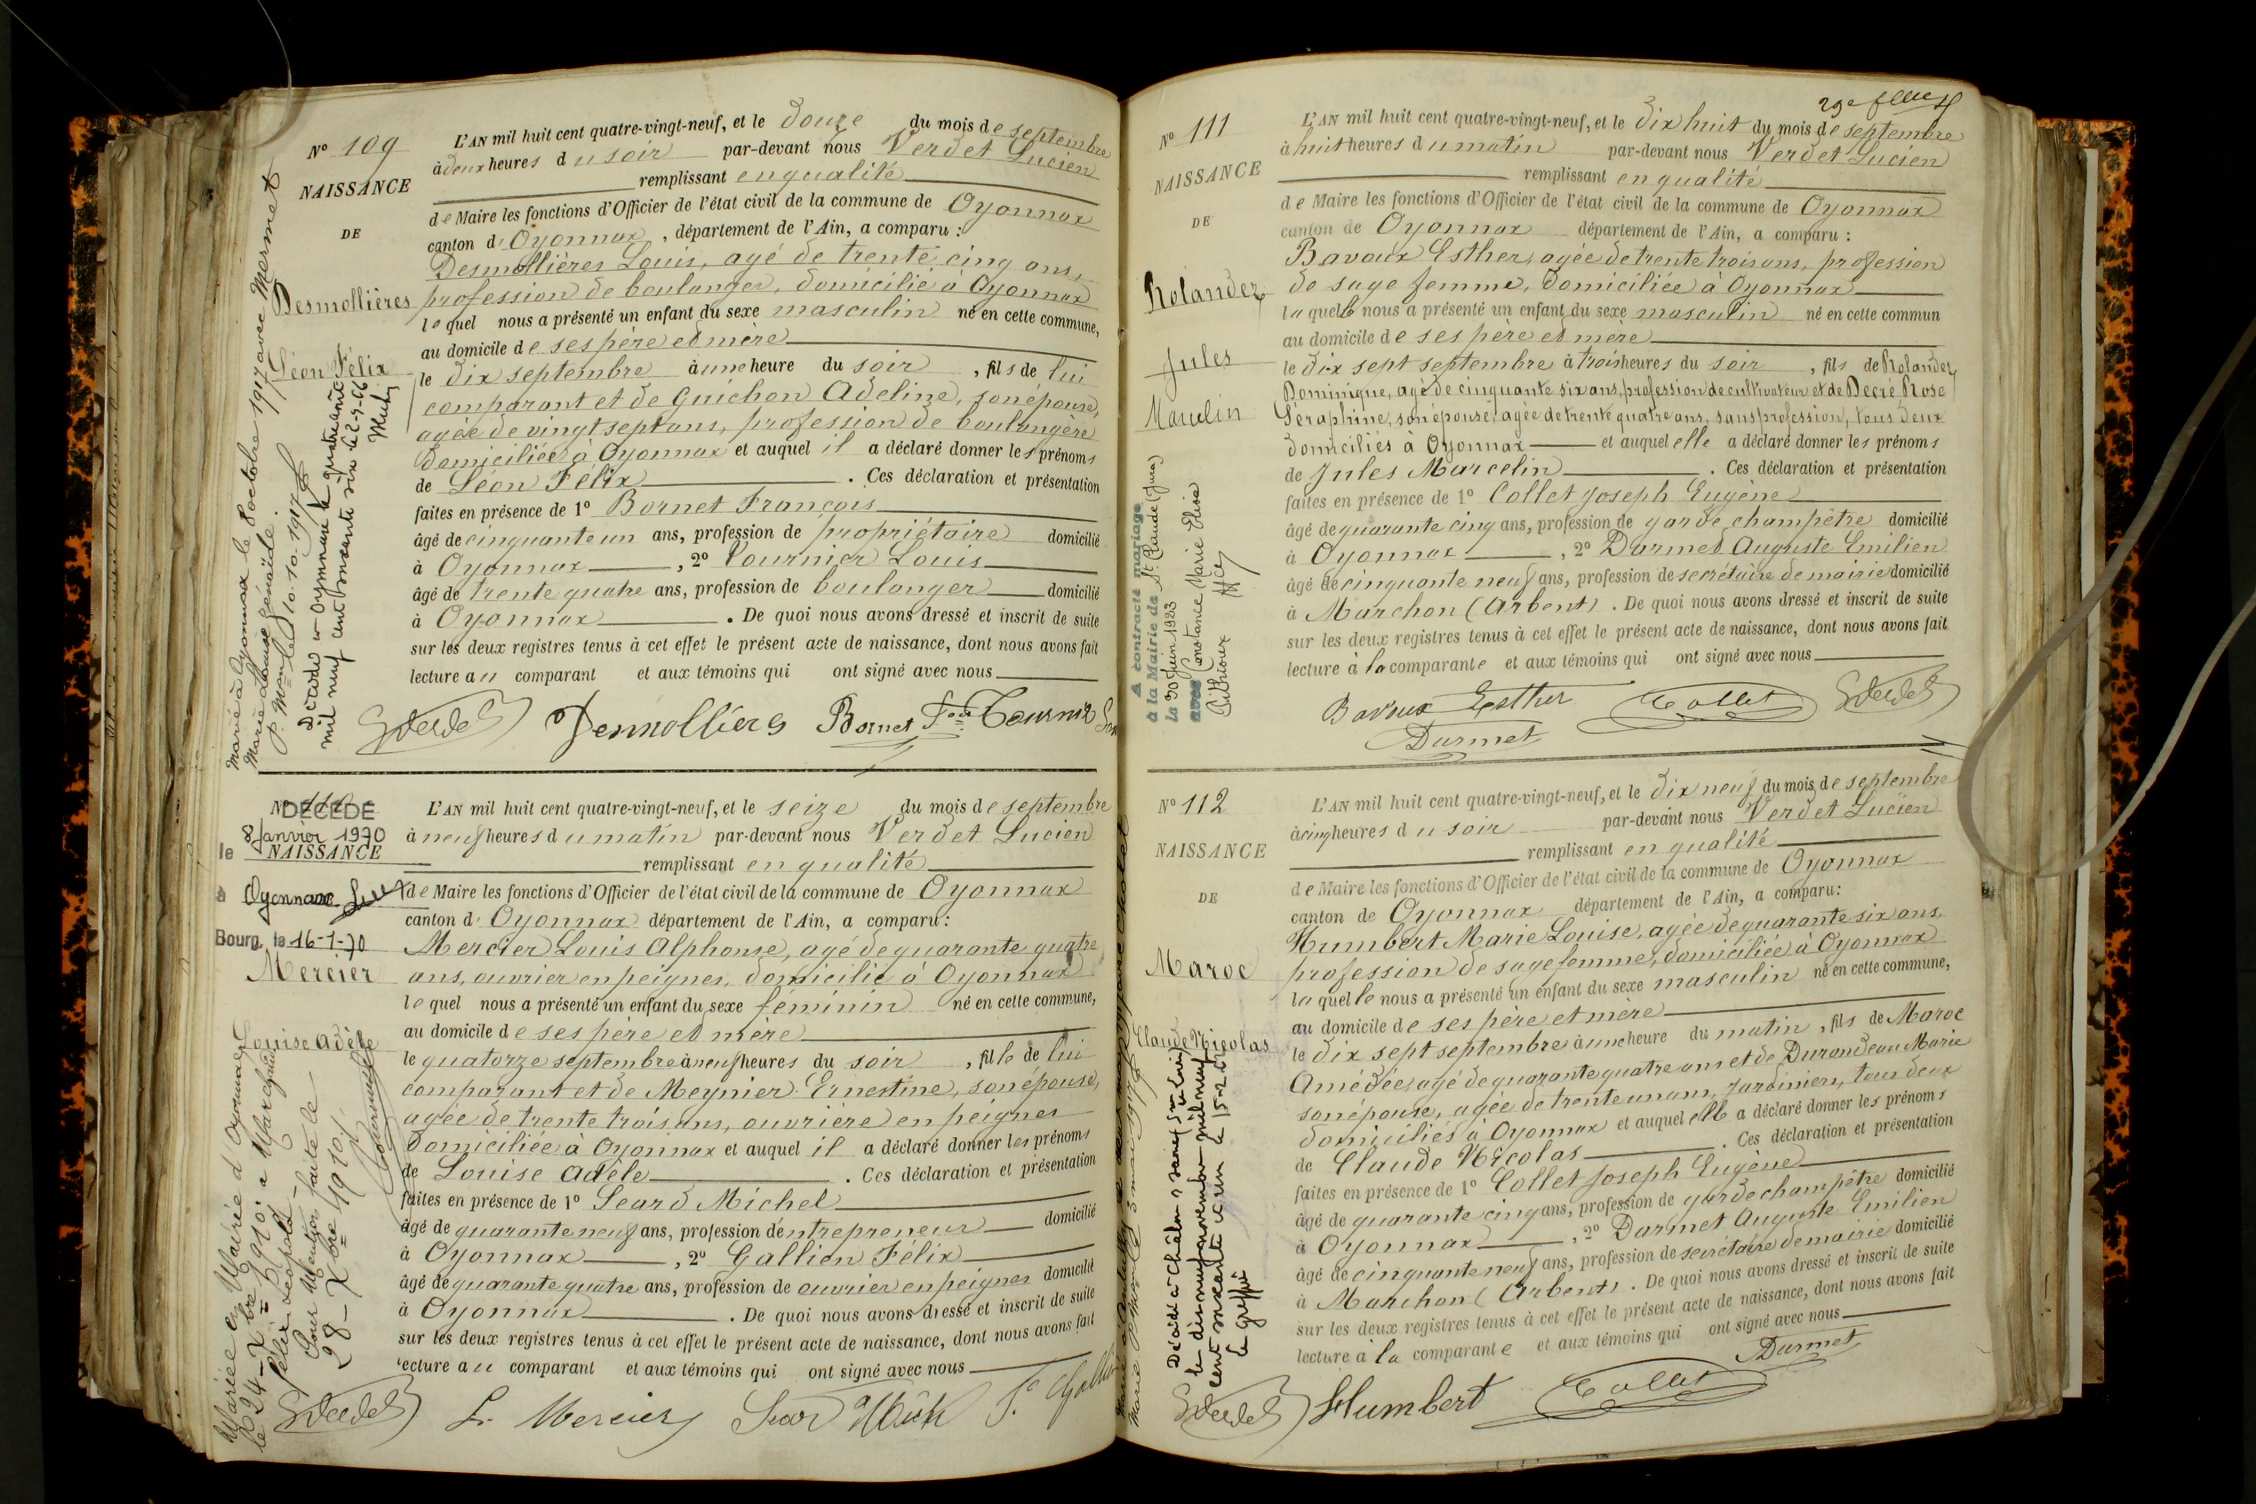 N° 109
NAISSANCE
DE
Desmollières
Léon Félix
Marié à Oyonnax le 8 octobre 1917 avec Mermet
Marie Louise
10.10.1917
Décédé à Oyonnax le quatre août
mil neuf cent soixante six
L'AN mil huit cent quatre-vingt-neuf, et le douze du mois de septembre
à deux heures du soir par-devant nous Verdet Lucien
remplissant en qualité
de Maire les fonctions d'Officier de l'état civil de la commune de Oyonnax
canton d' Oyonnax, département de l'Ain, a comparu :
Desmollières Louis, agé de trente cinq ans,
profession de boulanger, domicilié à Oyonnax
lequel nous a présenté un enfant du sexe masculin né en cette commune,
au domicile de ses père et mère
le dix septembre à une heure du soir, fils de lui
comparant et de Guichon Adeline, son épouse,
agée de vingt sept ans, profession de boulangère
domiciliée à Oyonnax et auquel il a déclaré donner les prénoms
de Léon Félix. Ces déclaration et présentation
faites en présence de 1° Bornet François
âgé de cinquante un ans, profession de propriétaire domicilié
à Oyonnax, 2° Tournier Louis
âgé de trente quatre ans, profession de boulanger domicilié
à Oyonnax. De quoi nous avons dressé et inscrit de suite
sur les deux registres tenus à cet effet le présent acte de naissance, dont nous avons fait
lecture au comparant et aux témoins qui ont signé avec nous
Desmollières Bornet Fois Tournier
DÉCÉDÉ
le 8 Janvier 1970
NAISSANCE
à Oyonnax
Bourg, le 16-1-70
Mercier
Louise Adèle
Mariée en Mairie d'Oyonnax
le 24 - Xbre 1910 à
Félix Léopold
Pour Mention faite le
28 - Xbre 1910
L'AN mil huit cent quatre-vingt-neuf, et le seize du mois de septembre
à neuf heures du matin par-devant nous Verdet Lucien
remplissant en qualité
de Maire les fonctions d'Officier de l'état civil de la commune de Oyonnax
canton d' Oyonnax département de l'Ain, a comparu :
Mercier Louis Alphonse, agé de quarante quatre
ans, ouvrier en peignes, domicilié à Oyonnax
lequel nous a présenté un enfant du sexe féminin né en cette commune,
au domicile de ses père et mère
le quatorze septembre à neuf heures du soir, fille de lui
comparant et de Meynier Ernestine, son épouse,
agée de trente trois ans, ouvrière en peignes
domiciliée à Oyonnax et auquel il a déclaré donner les prénoms
de Louise Adèle. Ces déclaration et présentation
faites en présence de 1° Seard Michel
âgé de quarante neuf ans, profession d'entrepreneur domicilié
à Oyonnax, 2° Gallien Félix
âgé de quarante quatre ans, profession de ouvrier en peignes domicilié
à Oyonnax. De quoi nous avons dressé et inscrit de suite
sur les deux registres tenus à cet effet le présent acte de naissance, dont nous avons fait
lecture au comparant et aux témoins qui ont signé avec nous
L. Mercier Seard
N° 111
NAISSANCE
DE
Rolandez
Jules
A contracté mariage
à la Mairie de St Claude (Jura)
le 30 Juin 1923
avec Constance Marie Elisa
L'AN mil huit cent quatre-vingt-neuf, et le dix huit du mois de septembre
à huit heures du matin par-devant nous Verdet Lucien
remplissant en qualité
de Maire les fonctions d'Officier de l'état civil de la commune de Oyonnax
canton de Oyonnax département de l'Ain, a comparu :
Bavoux Esther, agée de trente trois ans, profession
de sage femme, domiciliée à Oyonnax
laquelle nous a présenté un enfant du sexe masculin né en cette commun
au domicile de ses père et mère
le dix sept septembre à trois heures du soir, fils de Rolandez
Dominique, agé de cinquante six ans, profession de cultivateur et de Decré Rose
Séraphine, son épouse, agée de trente quatre ans, sans profession, tous deux
domiciliés à Oyonnax et auquel elle a déclaré donner les prénoms
de Jules Marcelin. Ces déclaration et présentation
faites en présence de 1° Collet Joseph Eugène
âgé de quarante cinq ans, profession de garde champêtre domicilié
à Oyonnax, 2° Darmet Auguste Emilien
âgé de cinquante neuf ans, profession de secrétaire de mairie domicilié
à Marchon (Arbent). De quoi nous avons dressé et inscrit de suite
sur les deux registres tenus à cet effet le présent acte de naissance, dont nous avons fait
lecture à la comparante et aux témoins qui ont signé avec nous
Bavoux Esther Collet
Darmet
N° 112
NAISSANCE
DE
Maroc
Claude Nicolas
le dix neuf novembre mil neuf
cent soixante
le greffier
L'AN mil huit cent quatre-vingt-neuf, et le dix neuf du mois de septembre
à cinq heures du soir par-devant nous Verdet Lucien
remplissant en qualité
de Maire les fonctions d'Officier de l'état civil de la commune de Oyonnax
canton de Oyonnax département de l'Ain, a comparu :
Humbert Marie Louise, agée de quarante six ans,
profession de sage femme, domiciliée à Oyonnax
laquelle nous a présenté un enfant du sexe masculin né en cette commune,
au domicile de ses père et mère
le dix sept septembre à une heure du matin, fils de Maroc
Amédée, agé de quarante quatre ans et de Durandeau Marie
son épouse, agée de trente un an, jardiniers, tous deux
domiciliés à Oyonnax et auquel elle a déclaré donner les prénoms
de Claude Nicolas. Ces déclaration et présentation
faites en présence de 1° Collet Joseph Eugène
âgé de quarante cinq ans, profession de garde champêtre domicilié
à Oyonnax, 2° Darmet Auguste Emilien
âgé de cinquante neuf ans, profession de secrétaire de mairie domicilié
à Marchon (Arbent). De quoi nous avons dressé et inscrit de suite
sur les deux registres tenus à cet effet le présent acte de naissance, dont nous avons fait
lecture à la comparante et aux témoins qui ont signé avec nous
Darmet
Humbert Collet